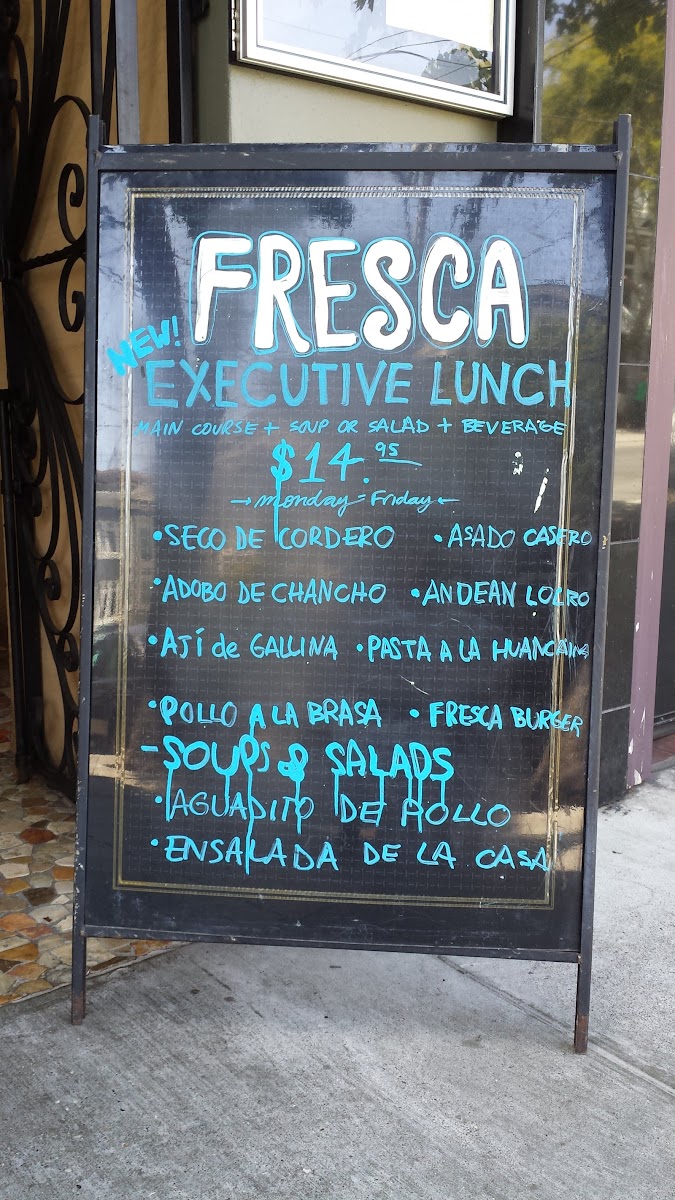 FRESCA
NEW!
EXECUTIVE LUNCH
MAIN COURSE + SOUP OR SALAD + BEVERAGE
$14.95
→ monday = Friday ←
• SECO DE CORDERO • ASADO CASERO
• ADOBO DE CHANCHO • ANDEAN LOCRO
• AJÍ de GALLINA • PASTA A LA HUANCAINA
• POLLO A LA BRASA • FRESCA BURGER
- SOUPS & SALADS
• AGUADITO DE POLLO
• ENSALADA DE LA CASA